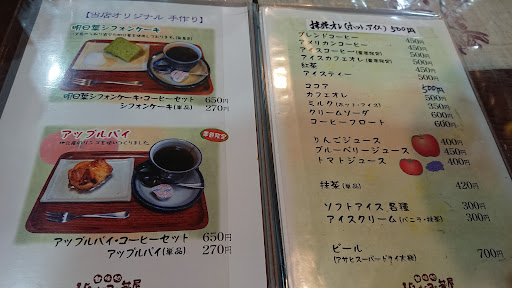 【当店オリジナル 手作り】
明日葉シフォンケーキ
明日葉シフォンケーキ・コーヒーセット 650円
シフォンケーキ(単品) 270円
アップルパイ
数量限定
アップルパイ・コーヒーセット 650円
アップルパイ(単品) 270円
抹茶オレ(ホット、アイス) 500円
ブレンドコーヒー 450円
アメリカンコーヒー 450円
アイスコーヒー 450円
アイスカフェオレ
紅茶
アイスティー
ココア 500円
カフェオレ 500円
ミルク(ホット・アイス) 350円
クリームソーダ 600円
コーヒーフロート
りんごジュース 400円
ブルーベリージュース 450円
トマトジュース 400円
抹茶(単品) 420円
ソフトアイス各種 300円
アイスクリーム(バニラ・抹茶) 300円
ビール 700円
(アサヒスーパードライ大瓶)
茶屋